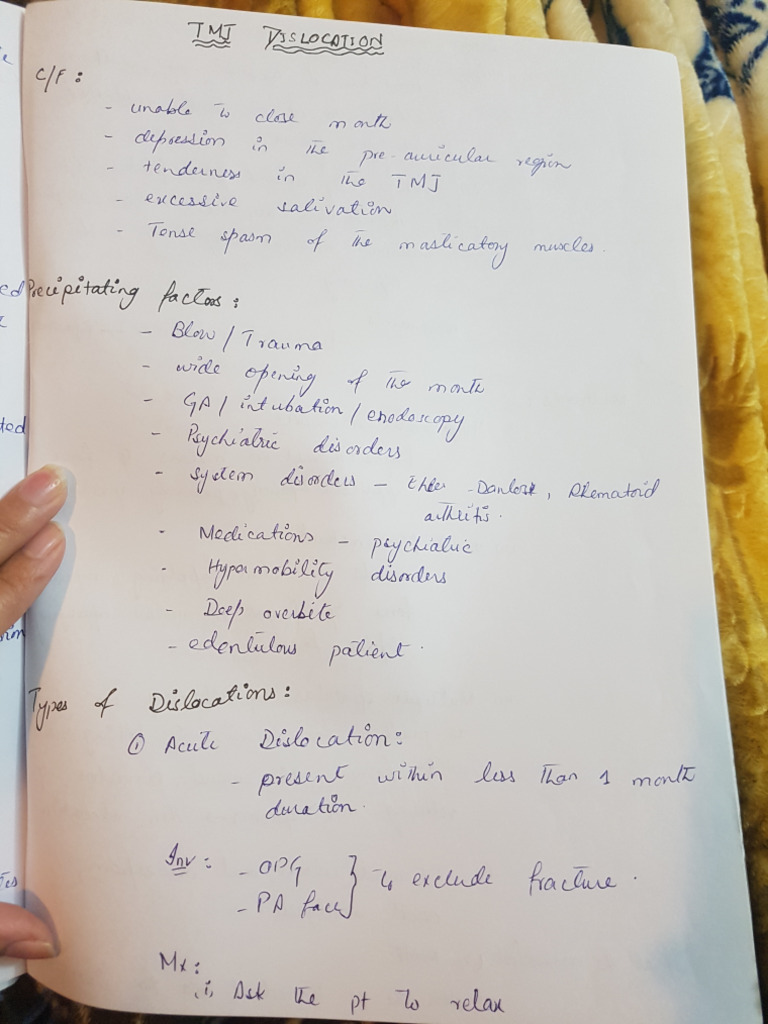 TMJ DISLOCATION
C/F:
- unable to close month
- depression in the pre-auricular region
- tenderness in the TMJ
- excessive salivation
- Tense spasm of the masticatory muscles.
Precipitating factors:
- Blow / Trauma
- wide opening of the month
- GA / intubation / enodoscopy
- Psychiatric disorders
- system disorders - Danlos, Rhematoid
arthritis.
- Medications - psychiatric
- Hypermobility disorders
- Deep overbite
- edentulous patient.
Types of Dislocations:
① Acute Dislocation:
- present within less than 1 month
duration.
Inv: - OPG } to exclude fracture.
- PA face
Mx:
i, Ask the pt to relax
ed
ted